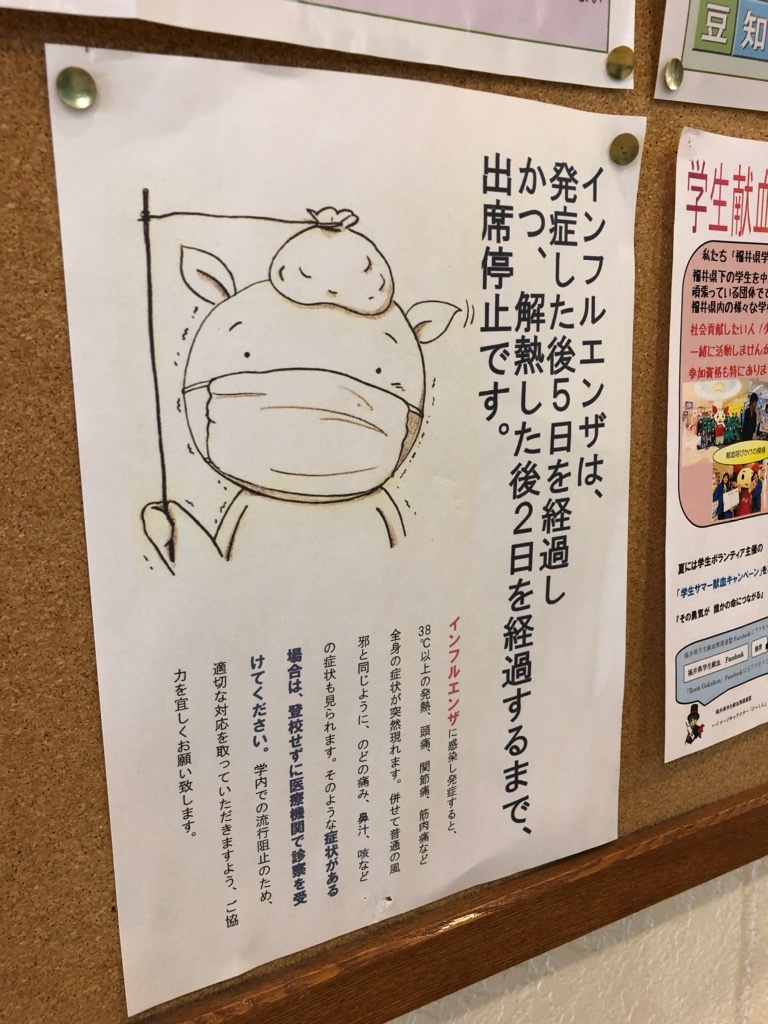 インフルエンザは、
発症した後5日を経過し
かつ、解熱した後2日を経過するまで、
出席停止です。
インフルエンザに感染し発症すると、
38℃以上の発熱、頭痛、関節痛、筋肉痛など
全身の症状が突然現れます。併せて普通の風
邪と同じように、のどの痛み、鼻汁、咳など
の症状も見られます。そのような症状がある
場合は、登校せずに医療機関で診察を受
けてください。学内での流行阻止のため、
適切な対応を取っていただきますよう、ご協
力を宜しくお願い致します。
豆知
学生献血
私たち「福井県学
福井県下の学生を中
頑張っている団体で
福井県内の様々な学
社会貢献したい人
一緒に活動しませんか
参加資格も特にありま
献血呼びかけの様子
夏には学生ボランティア主催の
「学生サマー献血キャンペーン」を
『その勇気が 誰かの命につながる』
福井県学生献血 Facebook